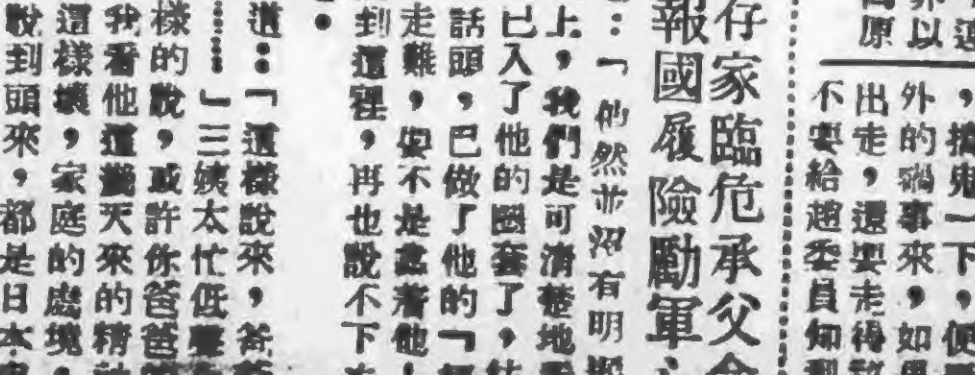 以
原
，搗鬼一下，便
外的禍事來，如
出走，還要走得
不要給趙委員知
存家臨危承父
報國履險勵軍
：「他然並沒有明
上，我們是可清楚地
已入了他的圈套了，
話頭，巴做了他的「
走難，要不是為着他
到這裡，再也說不下
道：「這樣說來，爸
……」三姨太忙低聲
樣的說，或許你爸爸
我看他這幾天來的精
這樣壞，家庭的處境，
說到頭來，都是日本